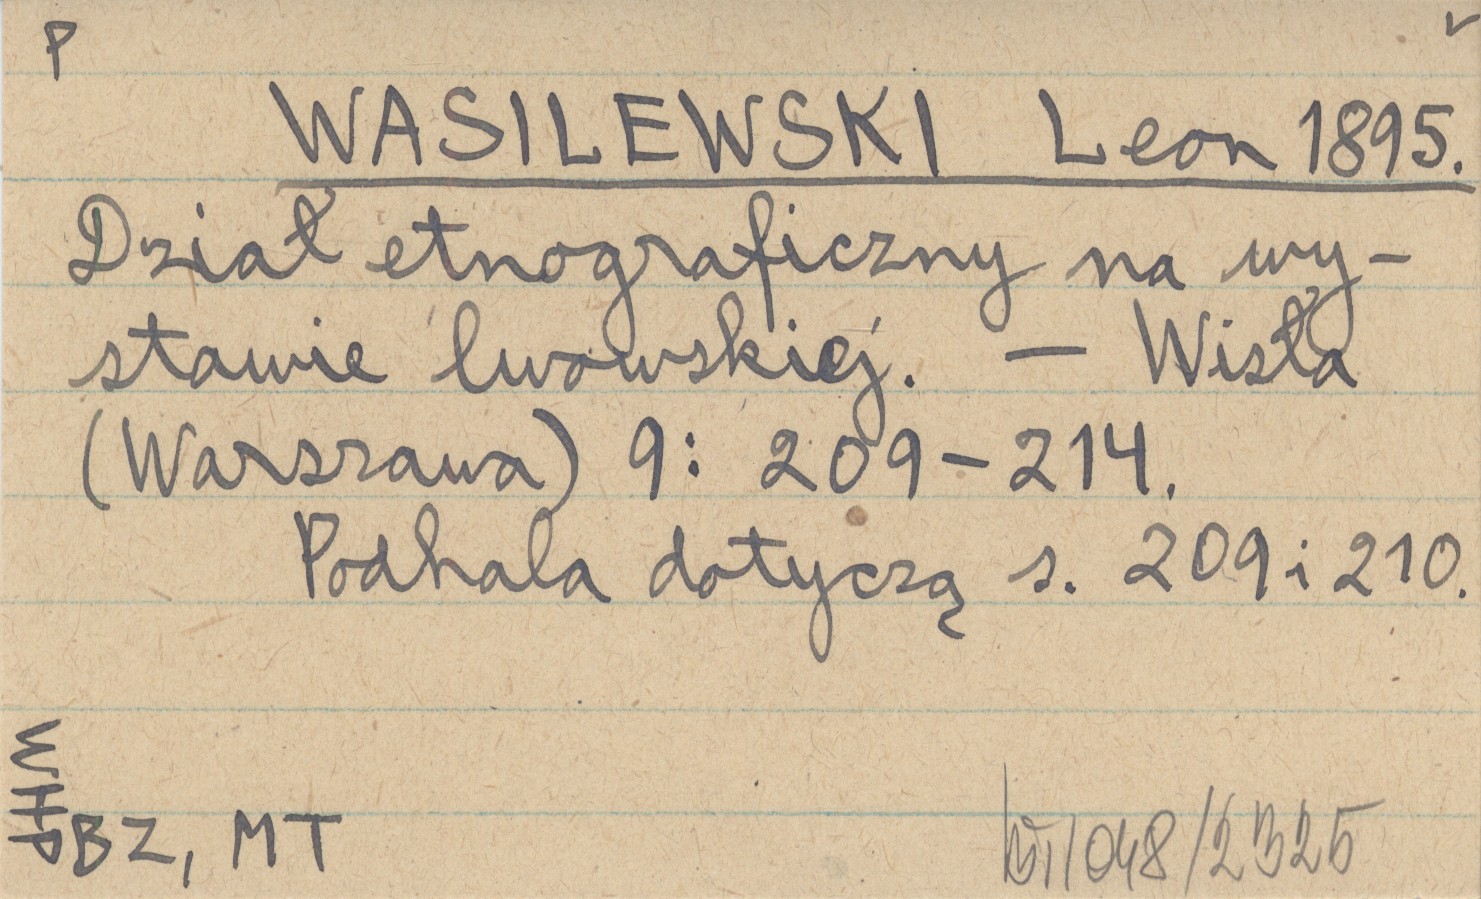 P
WASILEWSKI Leon 1895.
Dział etnograficzny na wy-
stawie lwowskiej. — Wisła
(Warszawa) 9: 209-214.
Podhala dotyczą s. 209 i 210.
BZ, MT
/048/2325